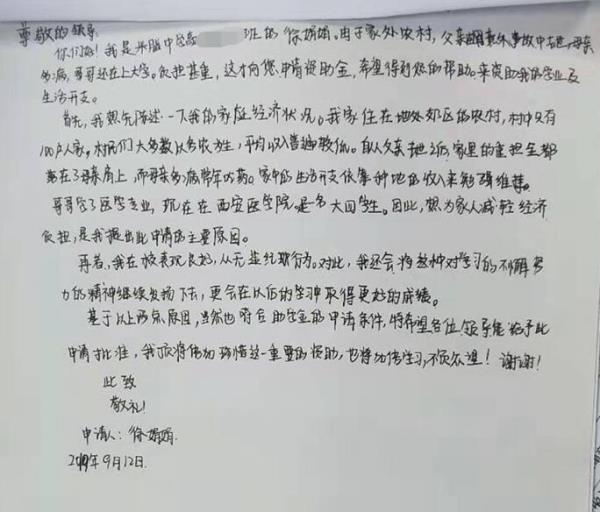 尊敬的领导
你们好！我是米脂中学高 班的徐娟娟。由于家处农村，父亲因意外事故中去世，母亲
多病，哥哥还在上大学。负担甚重，这才向您申请资助金，希望得到您的帮助。来资助我的学业及
生活开支。
首先，我想先陈述一下我的家庭经济状况。我家住在地处郊区的农村，村中只有
100户人家。村民们大多数以务农为生，平均收入普遍较低。自从父亲去世之后，家里的重担全都
落在了母亲肩上，而母亲多病常年吃药。家中的生活开支依靠种地的收入来勉强维持。
哥哥学了医学专业，现在在西安医学院。是名大四学生。因此，想为家人减轻经济
负担，是我提出此申请的主要原因。
再者，我在校表现良好，从无违纪行为。对此，我还会将这种对学习的不懈努
力的精神继续发扬下去，更会在以后的学习中取得更好的成绩。
基于以上两点原因，当然也符合助学金的申请条件，特希望各位领导能给予此
申请批准，我定将倍加珍惜这一重要的资助，也将加倍学习，不负众望！谢谢！
此致
敬礼！
申请人：徐娟娟.
年9月12日.